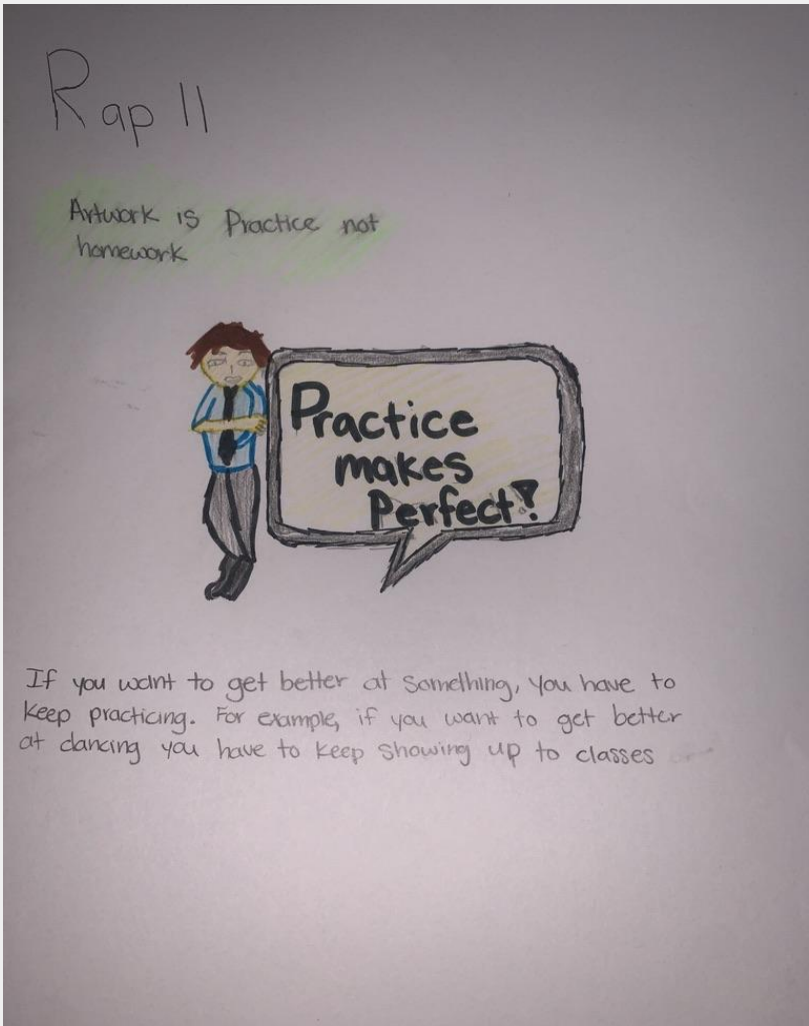 Rap 11
Artwork is Practice not
homework
Practice
makes
Perfect!
If you want to get better at something, you have to
keep practicing. For example, if you want to get better
at dancing you have to keep showing up to classes